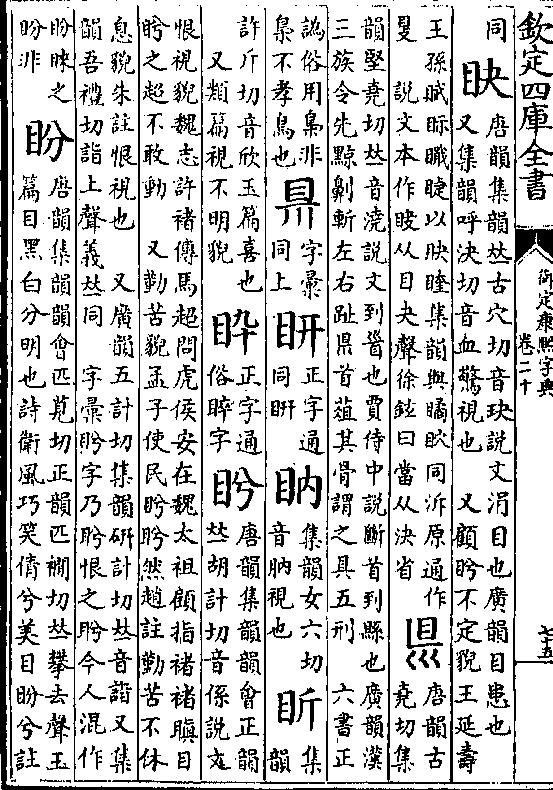 欽定四庫全書
御定康熙字典
卷二十
七十五
同
䀗
唐韻集韻𠀤古穴切音玦説文涓目也廣韻目患也
又集韻呼決切音血驚視也 又顧盻不定貌王延壽
王孫賦眎職睫以䀗睳集韻與矞䀗同泝原通作
説文本作 从目夬聲徐鉉曰當从決省
𥄉
唐韻古
堯切集
韻堅堯切𠀤音澆説文到𩠐也賈侍中説斷首到縣也廣韻漢
三族令先黥劓斬左右趾県首葅其骨謂之具五刑 六書正
譌俗用梟非
梟不孝鳥也
県
字彚
同上
正字通
同
集韻女六切
音肭視也
盺
集韻
許斤切音欣玉篇喜也
又類篇視不明貌
正字通
俗睟字
盻
唐韻集韻韻會正韻
𠀤胡計切音係説文
恨視貌魏志許褚傳馬超問虎侯安在魏太祖顧指褚褚瞋目
盻之超不敢動 又勤苦貌孟子使民盻盻然趙註勤苦不休
息貌朱註恨視也 又廣韻五計切集韻硏計切𠀤音詣又集
韻吾禮切詣上聲義𠀤同 字彚盻字乃盻恨之盻今人混作
盼睞之
盼非
盼
唐韻集韻韻會匹莧切正韻匹襉切𠀤攀去聲玉
篇目黑白分明也詩衛風巧笑倩兮美目盼兮註